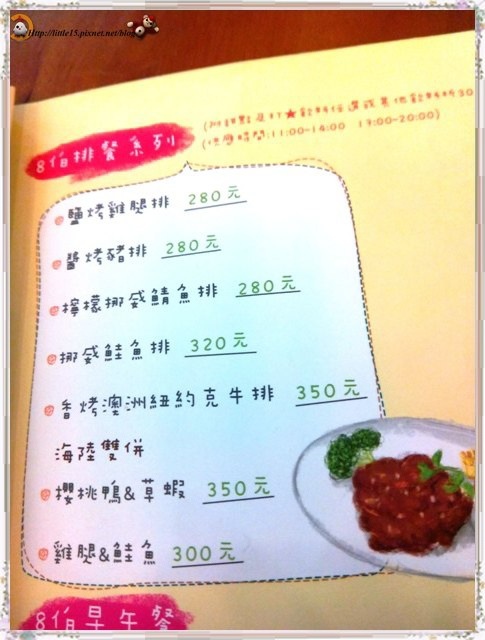 Http://little15.pixnet.net/blog
8伯排餐系列
(附甜點及打★飲料任選或其他飲料折30
(供應時間:11:00-14:00 17:00-20:00)
鹽烤雞腿排 280元
醬烤豬排 280元
檸檬挪威鯖魚排 280元
挪威鮭魚排 320元
香烤澳洲紐約克牛排 350元
海陸雙併
櫻桃鴨&草蝦 350元
雞腿&鮭魚 300元
8伯早午餐